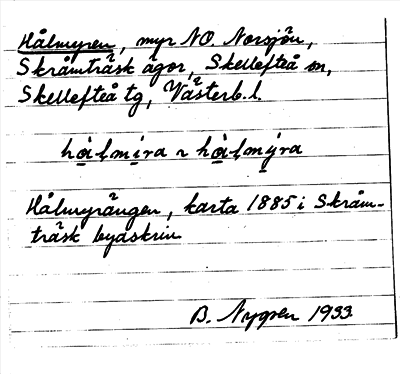 Hålmyren, myr NO. Norsjön,
Skråmträsk ägor, Skellefteå sn,
Skellefteå tg, Västerb. l.
hålmira ~ hålmýra
Hålmyrängen, karta 1885 i Skråm-
träsk byaskrin
B. Nygren 1933